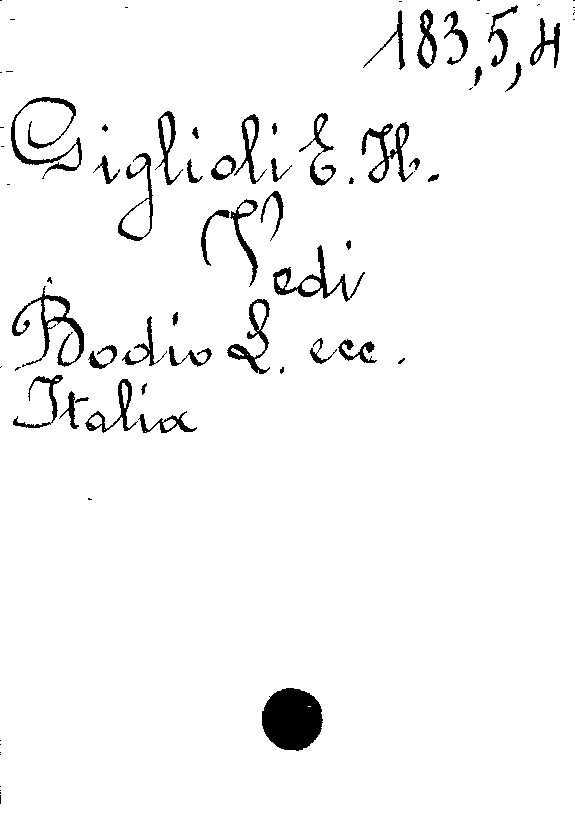 183,5,4
Giglioli E. H.
Vedi
Bodio L. ecc.
Italia